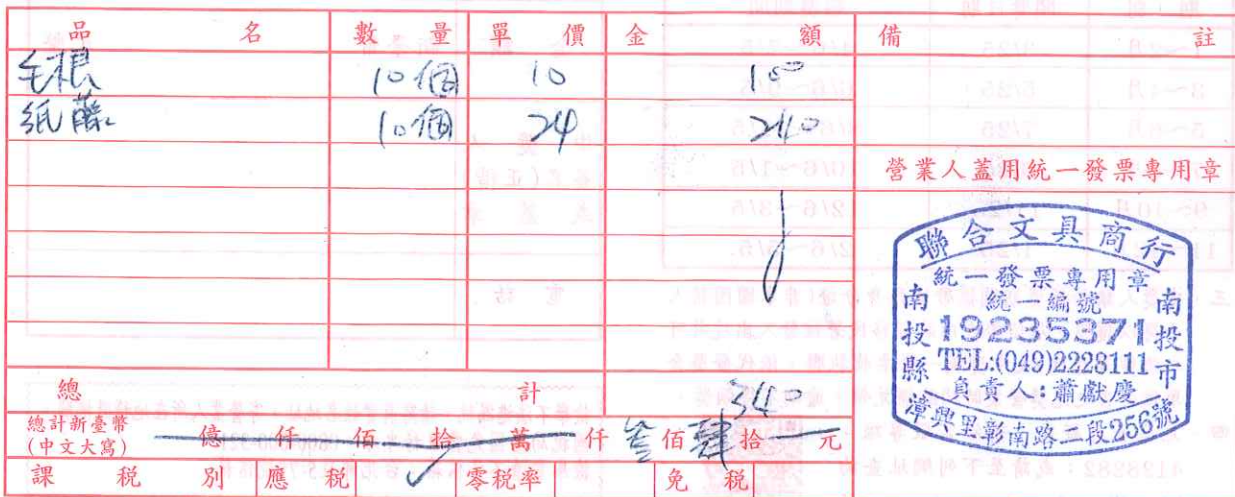 品名 數量 單價 金額 備註
毛根 10個 10 100
紙藤 10個 24 240
營業人蓋用統一發票專用章
聯合文具商行
統一發票專用章
統一編號
19235371
TEL:(049)2228111
負責人:蕭獻慶
南投縣
南投市
漳興里彰南路二段256號
總計 340
總計新臺幣
(中文大寫) 億 仟 佰 拾 萬 仟 叁 佰 肆 拾 元
課稅別 應稅 ✓ 零稅率 免稅